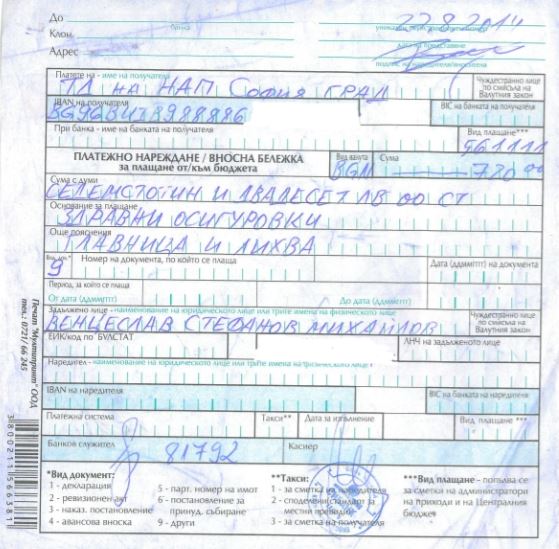 До
банка
Клон
Адрес
22.8.2014
дата на представяне
подпис на наредителя/вносителя
Платете на - име на получателя
ТД на НАП София ГРАД
Чуждестранно лице по смисъла на Валутния закон
IBAN на получателя
BIC на банката на получателя
При банка - име на банката на получателя
Вид плащане***
561111
ПЛАТЕЖНО НАРЕЖДАНЕ / ВНОСНА БЕЛЕЖКА
за плащане от/към бюджета
Вид валута
BGN
Сума
720 00
Сума с думи
СЕДЕМСТОТИН И ДВАДЕСЕТ ЛВ 00 СТ
Основание за плащане
ЗДРАВНИ ОСИГУРОВКИ
Още пояснения
ГЛАВНИЦА И ЛИХВА
Вид док.*
9
Номер на документа, по който се плаща
Дата (ддммгггг) на документа
Период, за който се плаща
От дата (ддммгггг)
До дата (ддммгггг)
Задължено лице - наименование на юридическото лице или трите имена на физическото лице
ВЕНЦЕСЛАВ СТЕФАНОВ МИХАЙЛОВ
Чуждестранно лице по смисъла на Валутния закон
ЕИК/код по БУЛСТАТ
ЛНЧ на задълженото лице
Наредител - наименование на юридическото лице или трите имена на физическото лице
IBAN на наредителя
BIC на банката на наредителя
Платежна система
Такси**
Дата за изпълнение
Вид плащане ***
Банков служител
81792
Касиер
*Вид документ:
1 - декларация
2 - ревизионен акт
3 - наказ. постановление
4 - авансова вноска
5 - парт. номер на имот
6 - постановление за
принуд. събиране
9 - други
**Такси:
1 - за сметка на наредителя
2 - споделени (стандарт за
местни преводи)
3 - за сметка на получателя
***Вид плащане - попълва се
за сметки на администратори
на приходи и на Централния
бюджет
Печат "Мултипринт" ООД
тел.: 0721/ 66 245
3800211566381